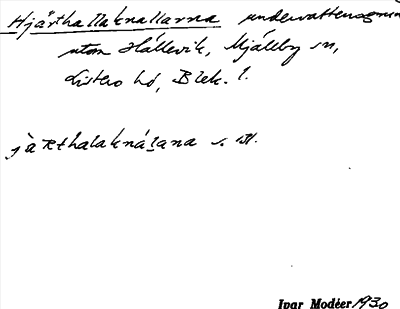 Hjärthallaknallarna undervattensgrund
utom Hällevik, Mjällby sn,
Listers hd, Blek. l.
jàrthalaknálana s. pl.
Ivar Modéer 1930